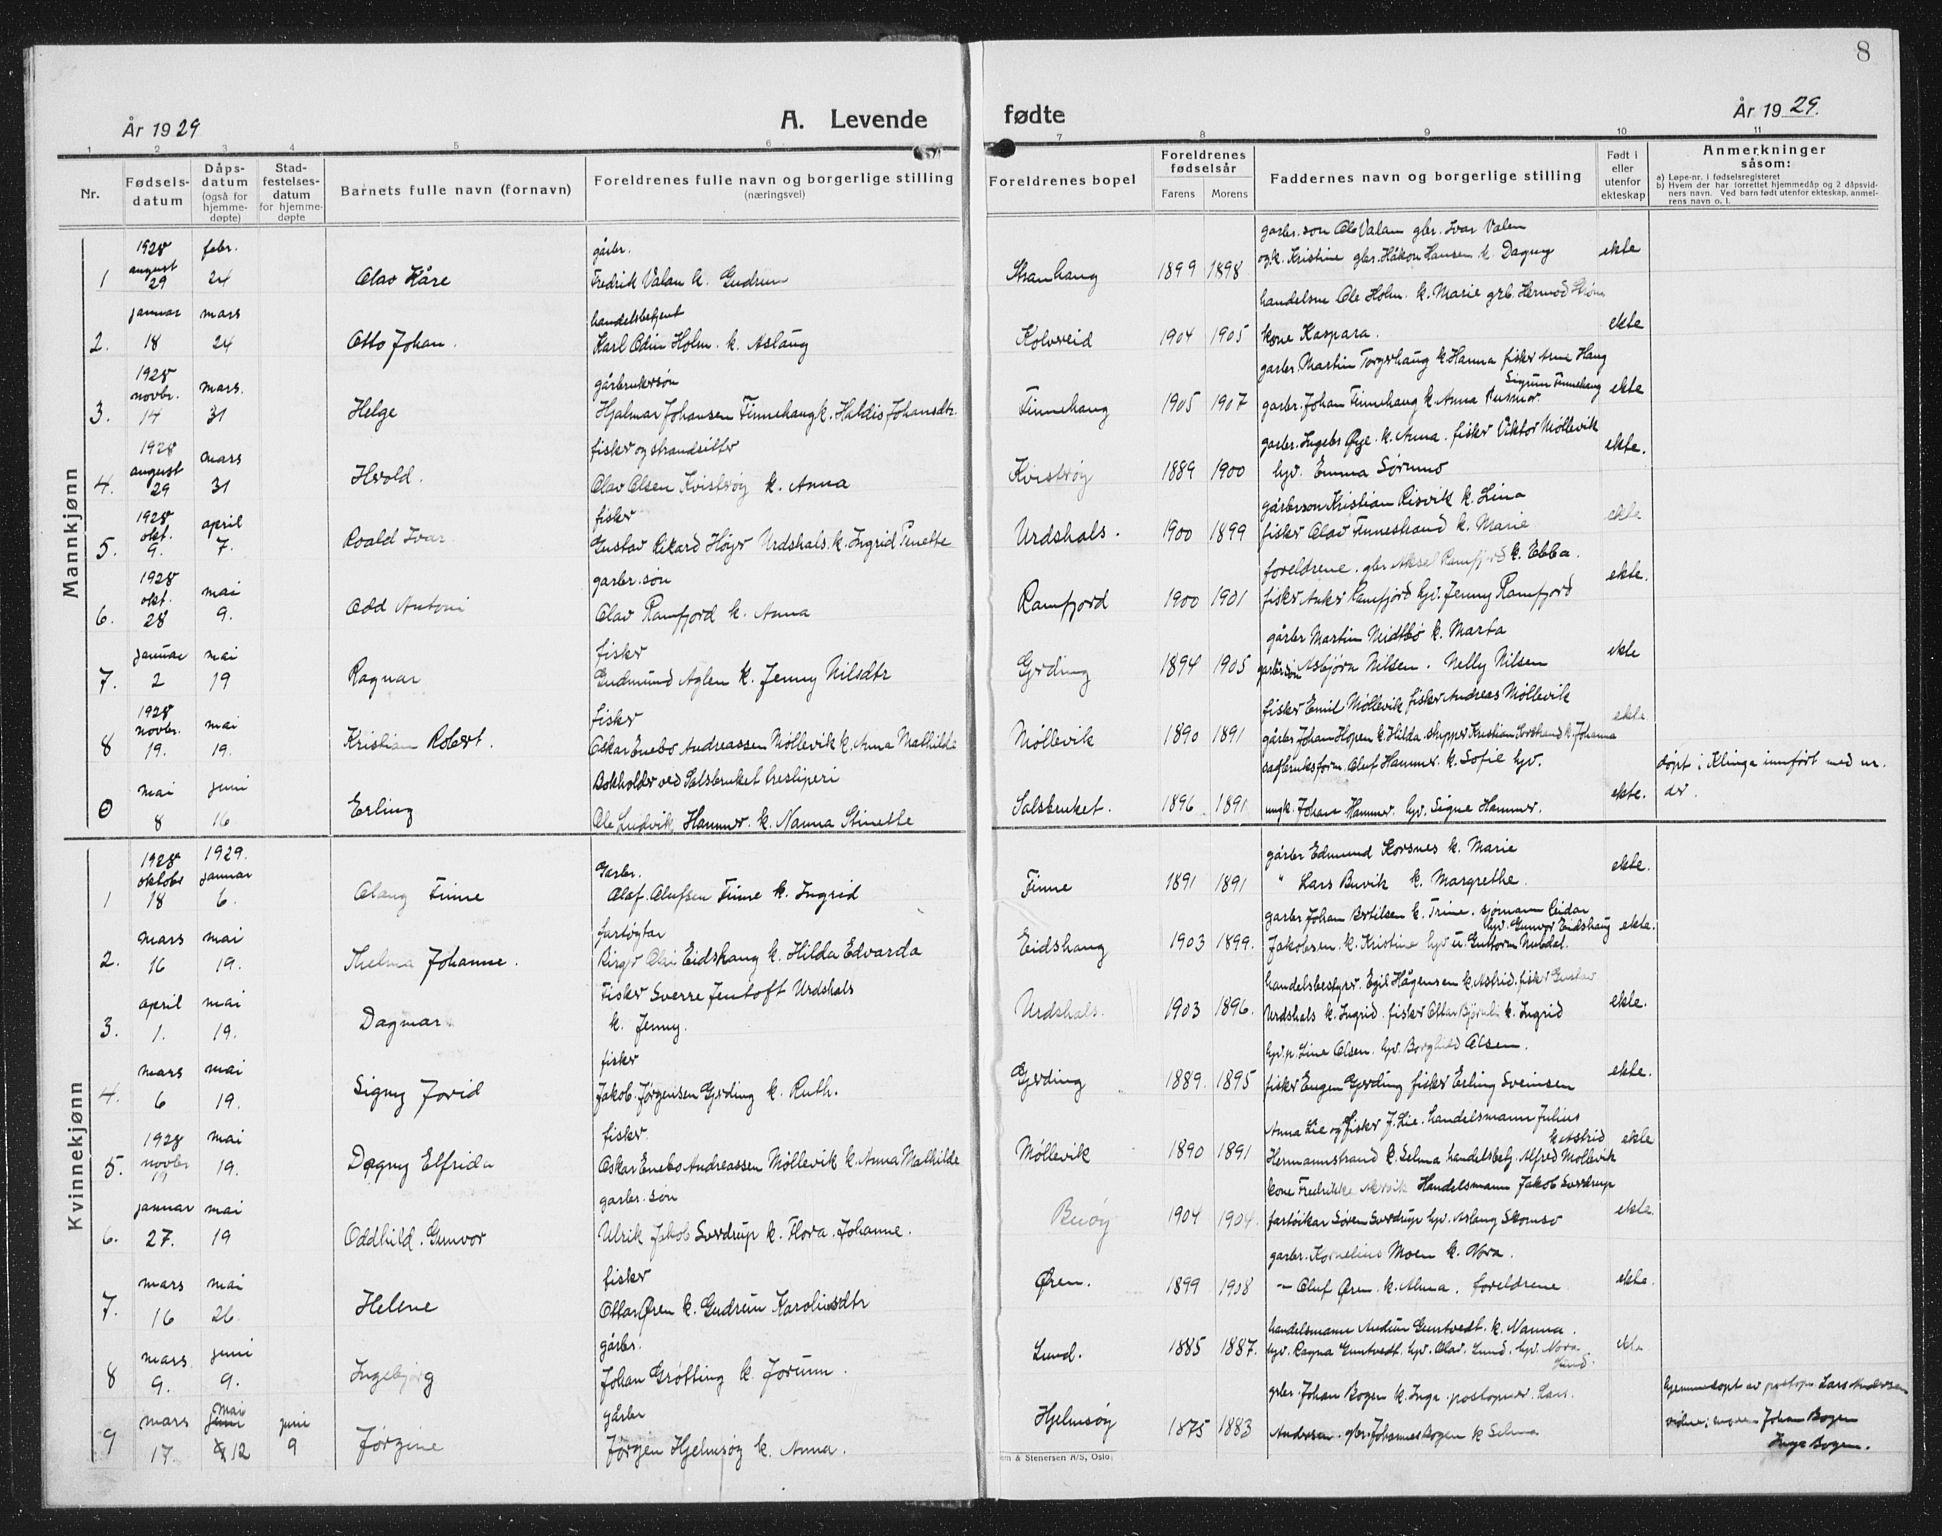 8
År 1929
A. Levende
fødte
År 1929.
1 2 3 4 5 6 7 8 9 10 11
Nr.
Fødsels-
datum
Dåps-
datum
(også for
hjemme-
døpte)
Stad-
festelses-
datum
for hjemme-
døpte
Barnets fulle navn (fornavn)
Foreldrenes fulle navn og borgerlige stilling
(næringsvei)
Foreldrenes bopel
Foreldrenes
fødselsår
Farens Morens
Faddernes navn og borgerlige stilling
Født i
eller
utenfor
ekteskap
Anmerkninger
såsom:
a) Løpe-nr. i fødselsregisteret
b) Hvem der har forrettet hjemmedåp og 2 dåpsvid-
ners navn. Ved barn født utenfor ekteskap, anmel-
rens navn o. l.
Mannkjønn
1928 febr. gårbr. garbr. søn Ole Valan gbr. Ivar Valen
1 august 29 24 Olav Kåre Fredrik Valan k. Gudrun 1899 1898 og k. Kristine gbr. Håkon Hansen k. Dagny ekte
januar mars handelsbetjent handelsm Ole Holm. k. Marie grb. Hermod
2. 18 24 Otto Johan. Karl Odin Holm. k. Aslaug Kolvereid 1904 1905 kone Kaspara. ekte
1928 novbr. mars. gårbrukersøn garbr. Martin Torgershaug k Hanna fisker Arne Haug
Sigrun Finnehaug
3. 14 31 Helge Hjalmar Johansen Finnehaug k. Haldis Johansdtr Finnehaug 1905 1907 garbr. Johan Finnehaug k. Anna ekte
1928 august mars fisker og strandsitter garbr. Ingebr Øye. k. Anna. fisker Viktor Møllevik
4. 29 31 Herold. Olav Olsen Kvisterøy k. Anna Kvisterøy 1889 1900 hyv. Emma Sørumo ekte.
1928 okt. april fisker gårberson Kristian Risvik k. Lina
5. 9. 7. Roald Ivar Gustav Rikard Høyer Urdshals. k. Ingrid Penette Urdshals. 1900 1899 fisker Olav Finnestrand k. Marie ekte
1928 okt. mai garbr. søn foreldrene. gbr Aksel Ramfjord k. Ebba.
6. 28 9. Odd Antoni Olav Ramfjord k. Anna Ramfjord 1900 1901 fisker Anker Ramfjord hyv. Jenny Ramfjord ekte.
januar mai fisker gårbr Martin Midtbø k. Marta
7. 2 19 Ragnar Gudmund Aglen k. Jenny Nilsdtr Gjerding 1894 1905 garbersøn Asbjørn Nilsen. Nelly Nilsen ekte
1928 novbr. mai fisker fisker Emil Møllevik fisker Andreas Møllevik
8 19. 19. Kristian Robert. Oskar Enebo Andreassen Møllevik k. Anna Mathilde Møllevik 1890 1891 gårbr Johan Hopen k. Hilda skipper Kristian k. Johanna ekte
mai juni Bokholder ved Salsbruket tresliperi sagbruksform. Oluf Hammer. k. Sofie hyv. døpt i Klinga innført med nr.
0 8 16 Erling Ole Ludvik Hammer. k. Nanna Stinette Salsbruket. 1896 1891 ungk. Johan Hammer. hyv. Signe Hammer. ekte. der.
Kvinnekjønn
1928 1929. Garbr. gårbr Edmund Korsnes k. Marie
1 oktober 18 januar 6. Olaug Finne Olaf. Olufsen Finne k. Ingrid Finne 1891 1891 " Lars Buvik k. Margrethe. ekte.
mars mai garbr Johan Bertilsen k. Trine. sjømann Reidar
hyv. Gunvor Eidshaug
2. 16 19. Thelma Johanne. Birger Eidshaug k. Hilda Edvarda Eidshaug 1903 1899. Jakobsen. k. Kristine hyv u. Guttorm ekte.
april mai Fisker Sverre Jentoft Urdshals handelsbestyrer. Egil Hågensen k. Astrid. fisker Gustav
3. 1. 19. Dagmar k. Jenny. Urdshals. 1903 1896. Urdshals k. Ingrid. fisker Ottar Bjørnli k. Ingrid ekte.
mars mai fisker hyv. p. Line Olsen. hyv. Borghild Olsen.
4. 6 19. Signy Jovid Jakob. Jørgensen Gjerding k. Ruth. Gjerding 1889. 1895 fisker Eugen Gjerding fisker Erling Sveinsen ekte.
1928 mai fisker. Anna Lie og fisker J. Lie. handelsmann Julius
k Astrid
5. novbr 19. Dagny Elfrida Oskar Enebo Andreassen Møllevik k. Anna Mathilde Møllevik 1890 1891 Hermannstrand k. Selma handelsbetj. Alfred Møllevik ekte
januar mai garbr. søn kone Fredrikke Handelsmann Jakob Sverdrup
6. 27. 19 Oddhild. Gunvor Ulrik Jakob Sverdrup k. Flora. Johanne. Buøy 1904 1904. fartøikar Søren Sverdrup hyv. Aslaug Skomsø ekte.
mars mai fisker garbr. Kornelius Moen k. Nora.
7. 16 26. Helene Ottar Øren k. Gudrun Karoliusdtr Øren. 1899 1908 — Oluf Øren. k. Alma. foreldrene ekte.
mars juni gårbr. handelsmann Guntvedt. k. Nanna.
8 9. 9. Ingebjørg Johan Grøtting k. Jorunn. Lund. 1885 1887. hyv. Ragna Guntvedt. hyv. Olav. Lund. hyv. Nora Lund. ekte
mars mai juni juni gårbr grbr. Johan Bogen k. Inga. postopner. Lars. hjemmedøpt av postopn Lars Andersen
9 17. 12 9 Jørgine Jørgen Hjelmsøy k. Anna. Hjelmsøy 1875 1883 Andersen. gbr. Johannes Bogen k Selma vidner: Johan Bogen
Inga Bogen.
em & Stenersen A/S, Oslo